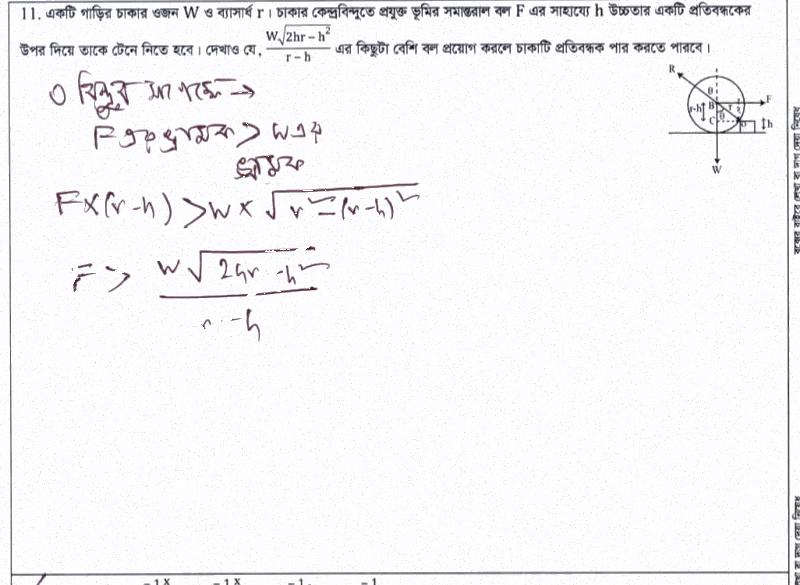 11. একটি গাড়ির চাকার ওজন W ও ব্যাসার্ধ r। চাকার কেন্দ্রবিন্দুতে প্রযুক্ত ভূমির সমান্তরাল বল F এর সাহায্যে h উচ্চতার একটি প্রতিবন্ধকের
উপর দিয়ে তাকে টেনে নিতে হবে। দেখাও যে, W√2hr – h² / r – h এর কিছুটা বেশি বল প্রয়োগ করলে চাকাটি প্রতিবন্ধক পার করতে পারবে।
R
θ
B
F
r-h
C
θ
h
W
O বিন্দুর সাপেক্ষে →
F এর ভ্রামক > W এর
ভ্রামক
F×(r-h) > W × √r² – (r-h)²
F > W√2hr – h² / r – h